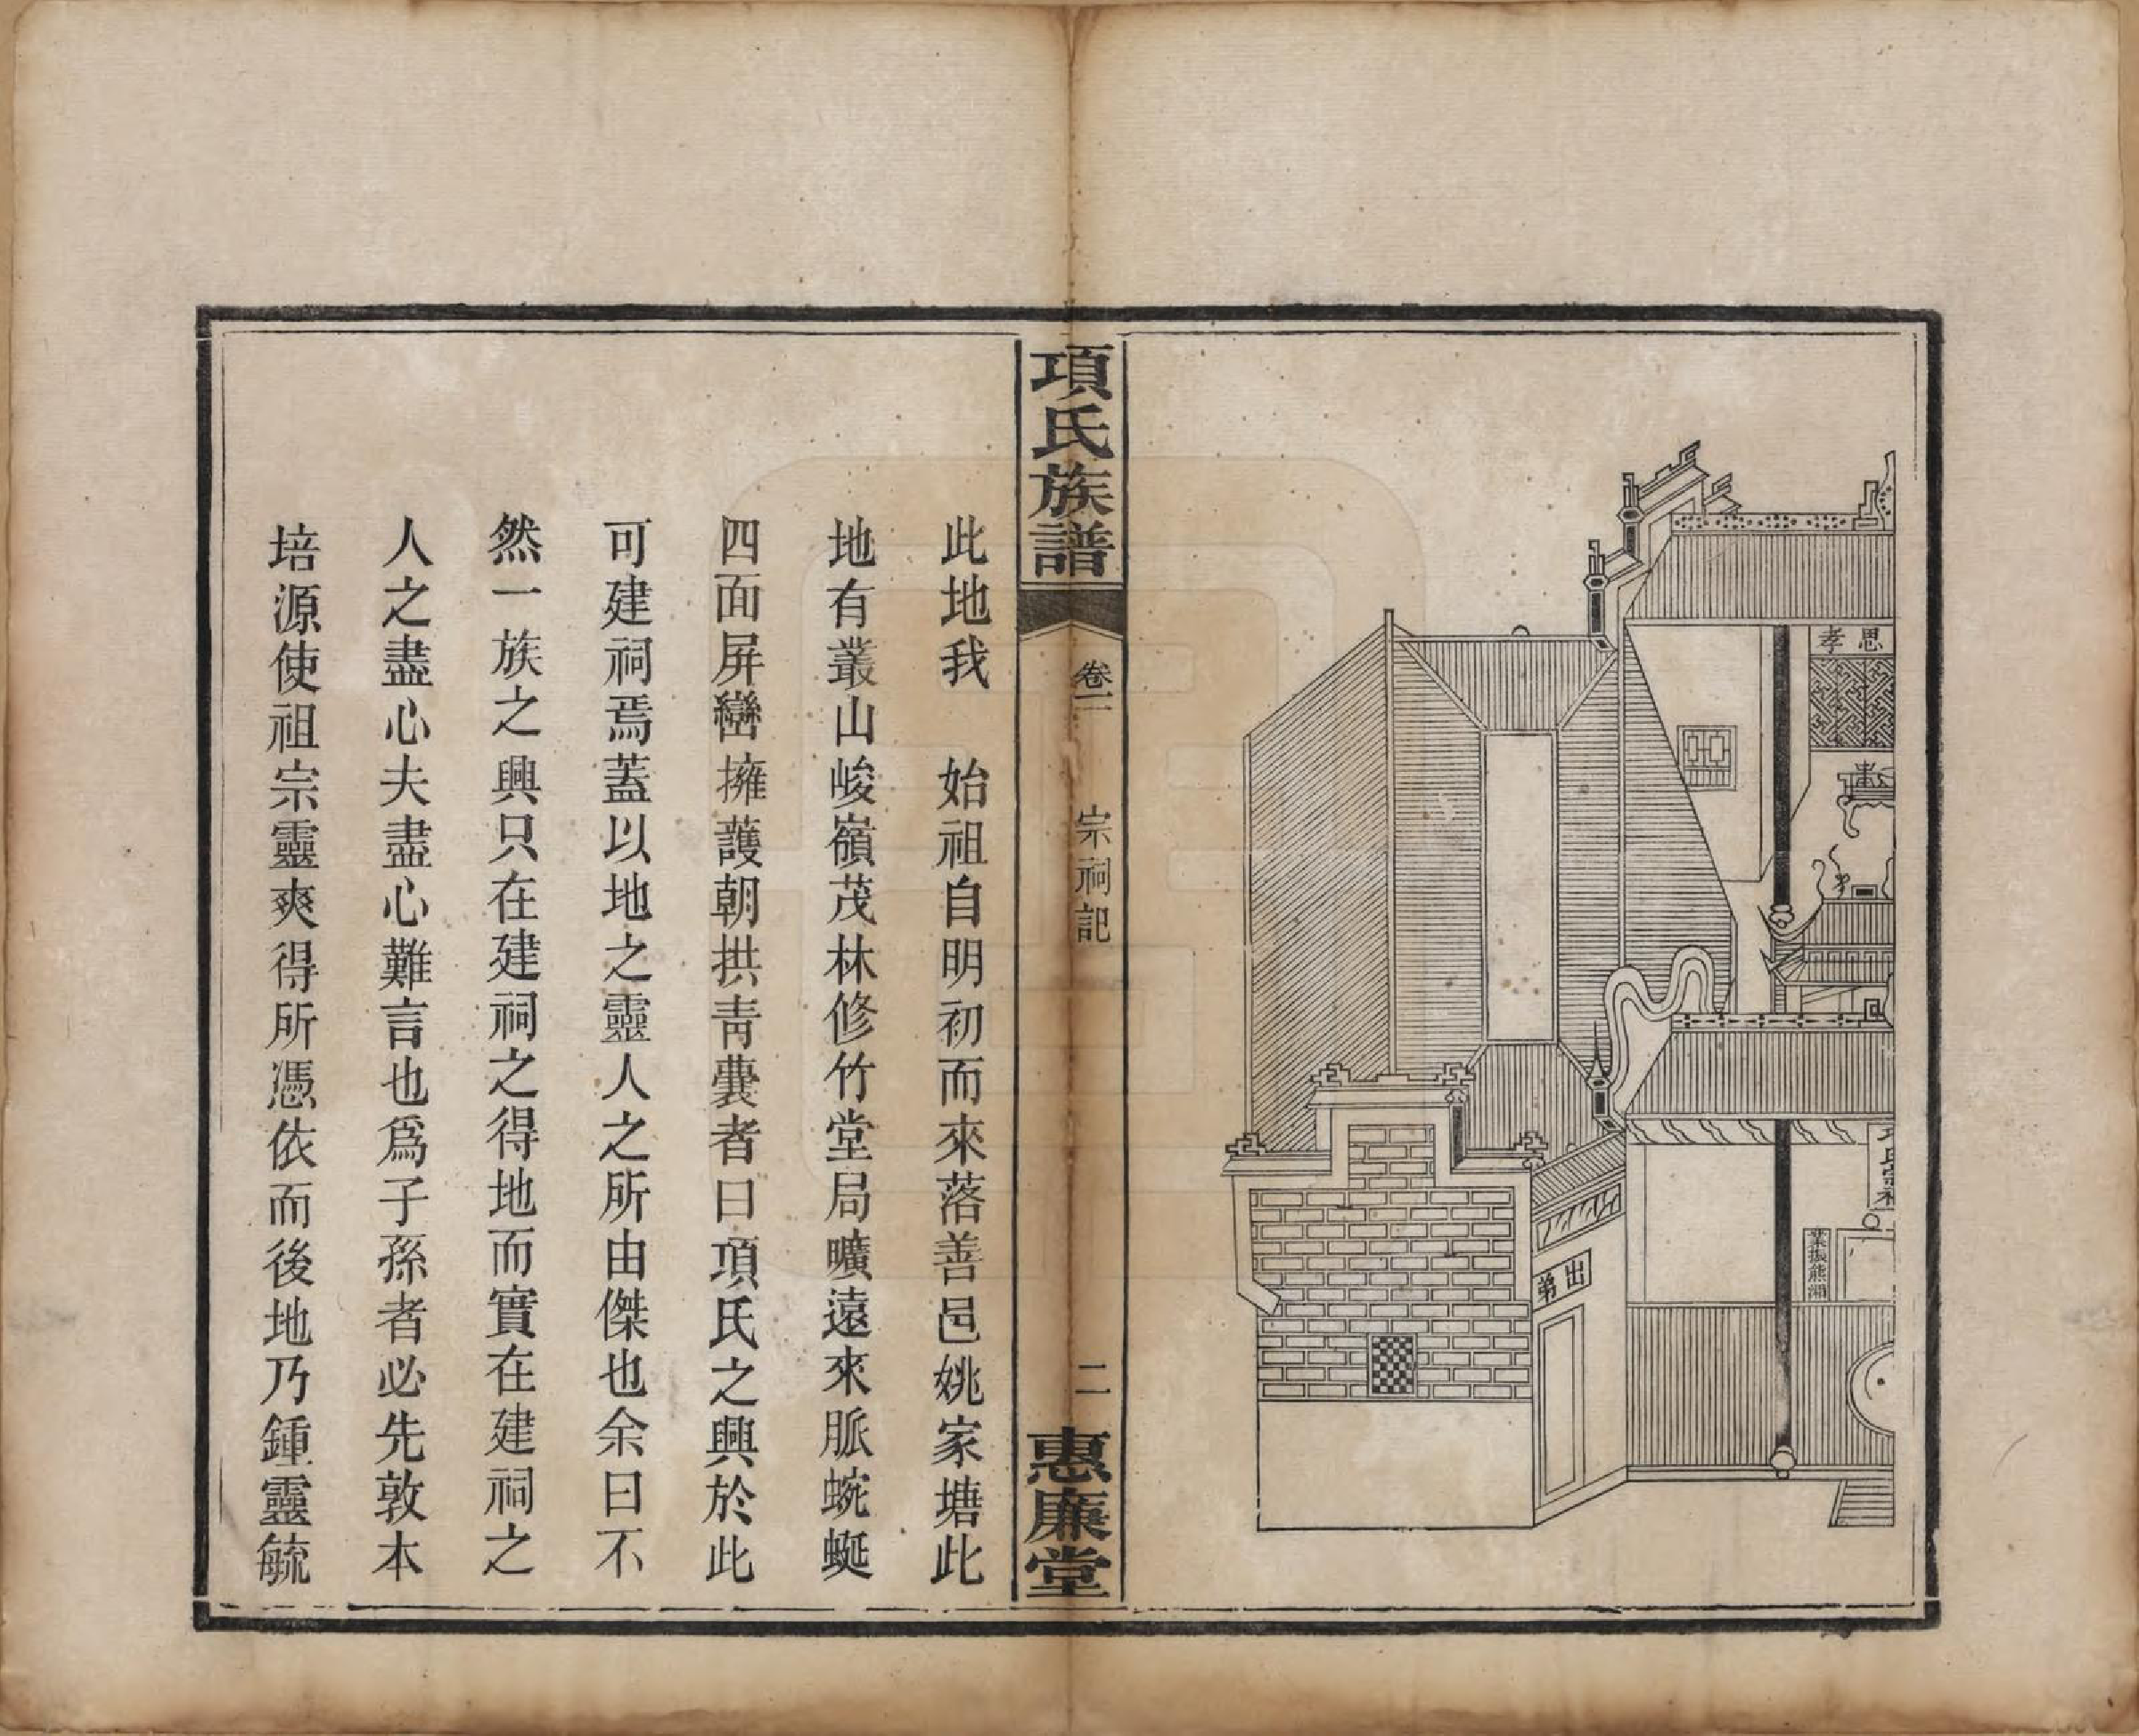 思孝
項氏宗祠
業振熊湘
出弟
項氏族譜
卷一
宗祠記
二
惠廉堂
此地我　始祖自明初而來落善邑姚家塘此
地有叢山峻嶺茂林修竹堂局曠遠來脈蜿蜒
四面屏巒擁護朝拱青囊者曰項氏之興於此
可建祠焉蓋以地之靈人之所由傑也余曰不
然一族之興只在建祠之得地而實在建祠之
人之盡心夫盡心難言也爲子孫者必先敦本
培源使祖宗靈爽得所憑依而後地乃鍾靈毓